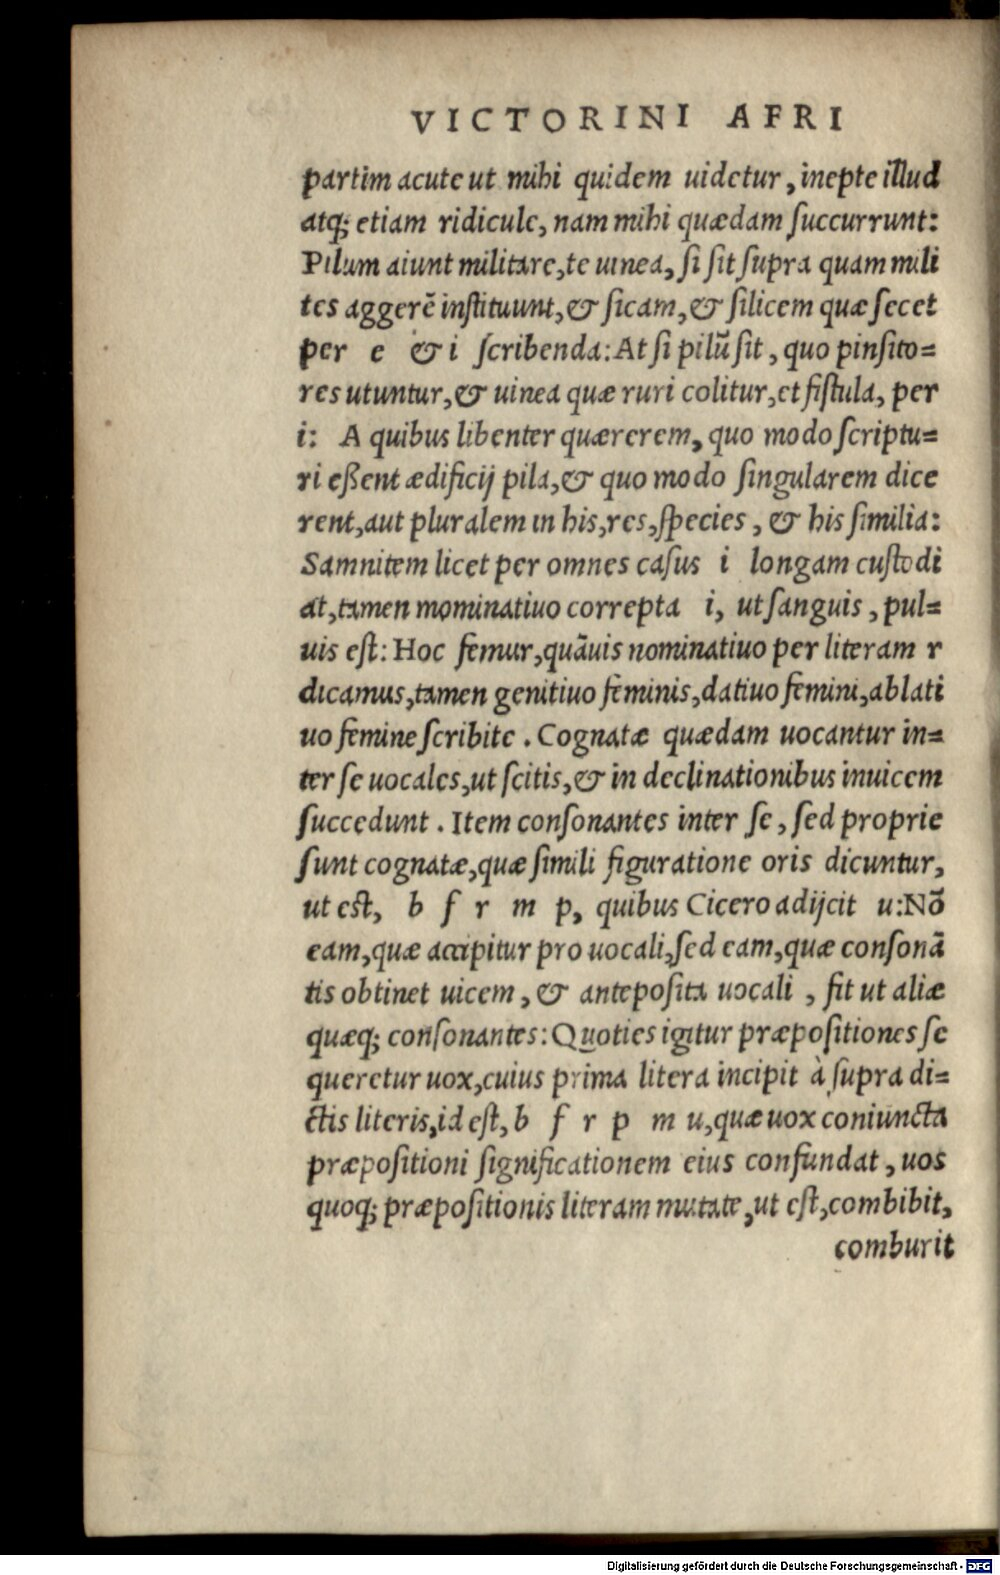 VICTORINI AFRI
partim acute ut mihi quidem uidetur, inepte illud
atq; etiam ridicule, nam mihi quædam ſuccurrunt:
Pilum aiunt militare, te uinea, ſi ſit ſupra quam mili
tes aggerē inſtituunt, & ſicam, & ſilicem quæ ſecet
per e & i ſcribenda: At ſi pilū ſit, quo pinſito=
res utuntur, & uinea quæ ruri colitur, et fiſtula, per
i: A quibus libenter quærerem, quo modo ſcriptu=
ri eßent ædificij pila, & quo modo ſingularem dice
rent, aut pluralem in his, res, ſpecies, & his ſimilia:
Samnitem licet per omnes caſus i longam cuſtodi
at, tamen mominatiuo correpta i, ut ſanguis, pul=
uis eſt: Hoc femur, quāuis nominatiuo per literam r
dicamus, tamen genitiuo feminis, datiuo femini, ablati
uo femine ſcribite. Cognatæ quædam uocantur in=
ter ſe uocales, ut ſcitis, & in declinationibus inuicem
ſuccedunt. Item conſonantes inter ſe, ſed proprie
ſunt cognatæ, quæ ſimili figuratione oris dicuntur,
ut eſt, b f r m p, quibus Cicero adijcit u: Nō
eam, quæ accipitur pro uocali, ſed eam, quæ conſonā
tis obtinet uicem, & anteposita uocali, fit ut aliæ
quæq; conſonantes: Quoties igitur præpoſitiones ſe
queretur uox, cuius prima litera incipit à ſupra di=
ctis literis, id eſt, b f r p m u, quæ uox coniuncta
præpoſitioni ſignificationem eius confundat, uos
quoq; præpoſitionis literam mutate, ut eſt, combibit,
comburit
Digitalisierung gefördert durch die Deutsche Forschungsgemeinschaft - DFG